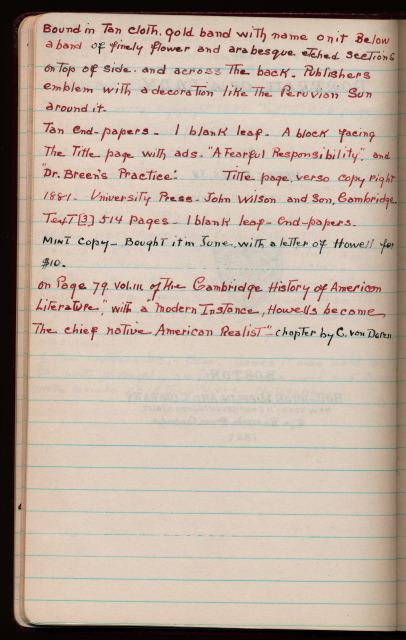 Bound in Tan cloth, gold band with name on it Below
a band of finely flower and arabesque etched sections
on top of side. and across The back. Publishers
emblem with a decoration like The Peruvian Sun
around it.
Tan End-papers - 1 blank leaf. A block facing
The Title page with ads. "A Fearful Responsibility", and
"Dr. Breen's Practice." Title page, verso copyright
1881. University Press - John Wilson and Son, Cambridge
Text [3] 514 pages - 1 blank leaf - End-papers.
Mint copy - Bought it in June, with a letter of Howell for
$10.
on Page 79. vol. III of the Cambridge History of American
Literature", with a "Modern Instance, Howells became
The chief native American Realist" - chapter by C. van Doren
BOSTON
HOUGHTON MIFFLIN AND COMPANY